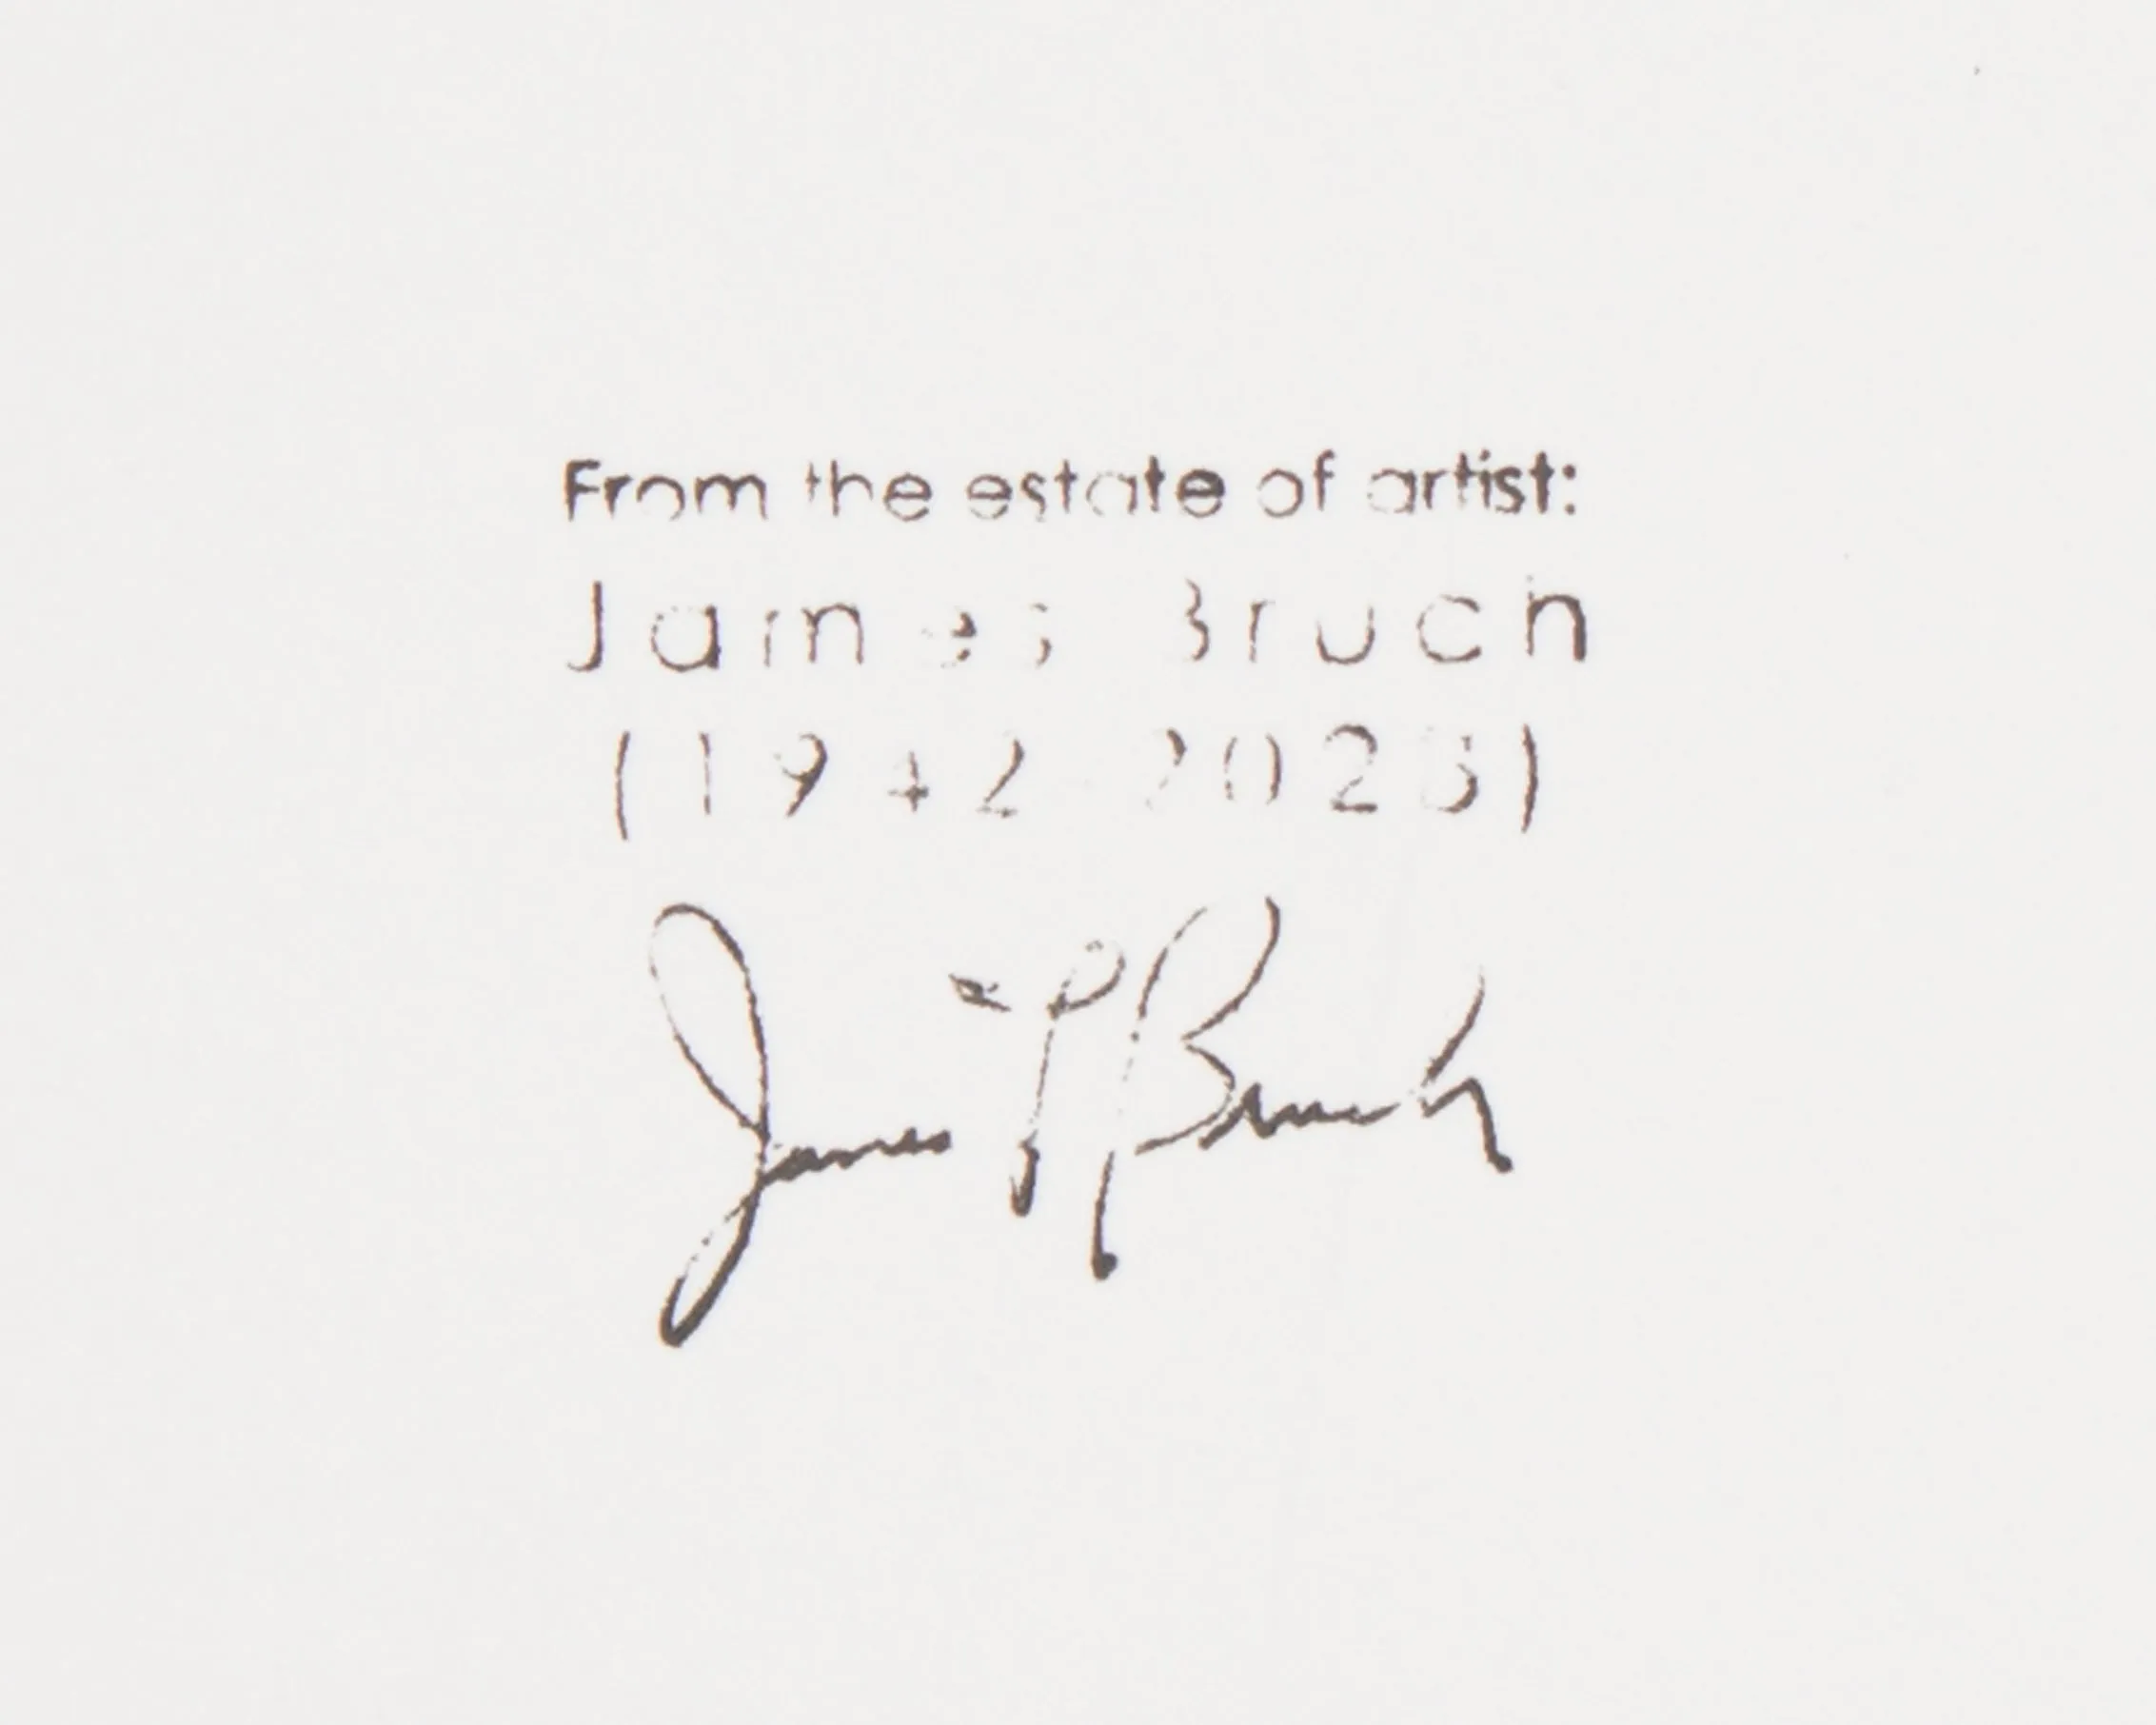 From the estate of artist:
James Bruch
(1942 2023)
James P Bruch